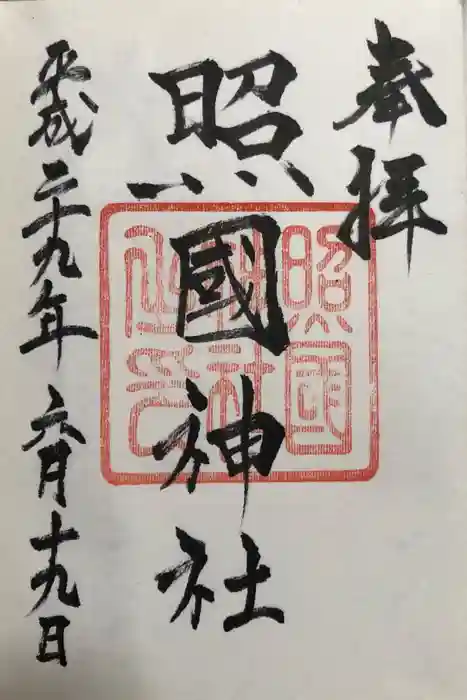 奉拝
照國神社
照國
神社
之印
平成二十九年六月十九日